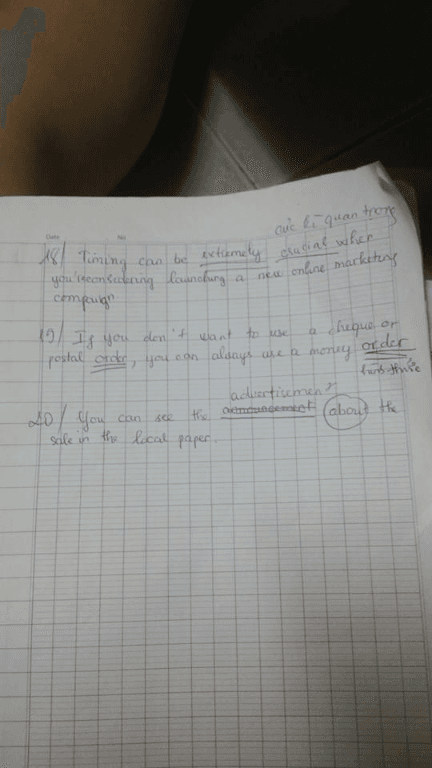 Date No
cực kì quan trọng
18/ Timing can be extremely crucial when
you're considering launching a new online marketing
campaign
19/ If you don't want to use a cheque or
postal order, you can always use a money order
advertisement
20/ You can see the announcement about the
sale in the local paper.